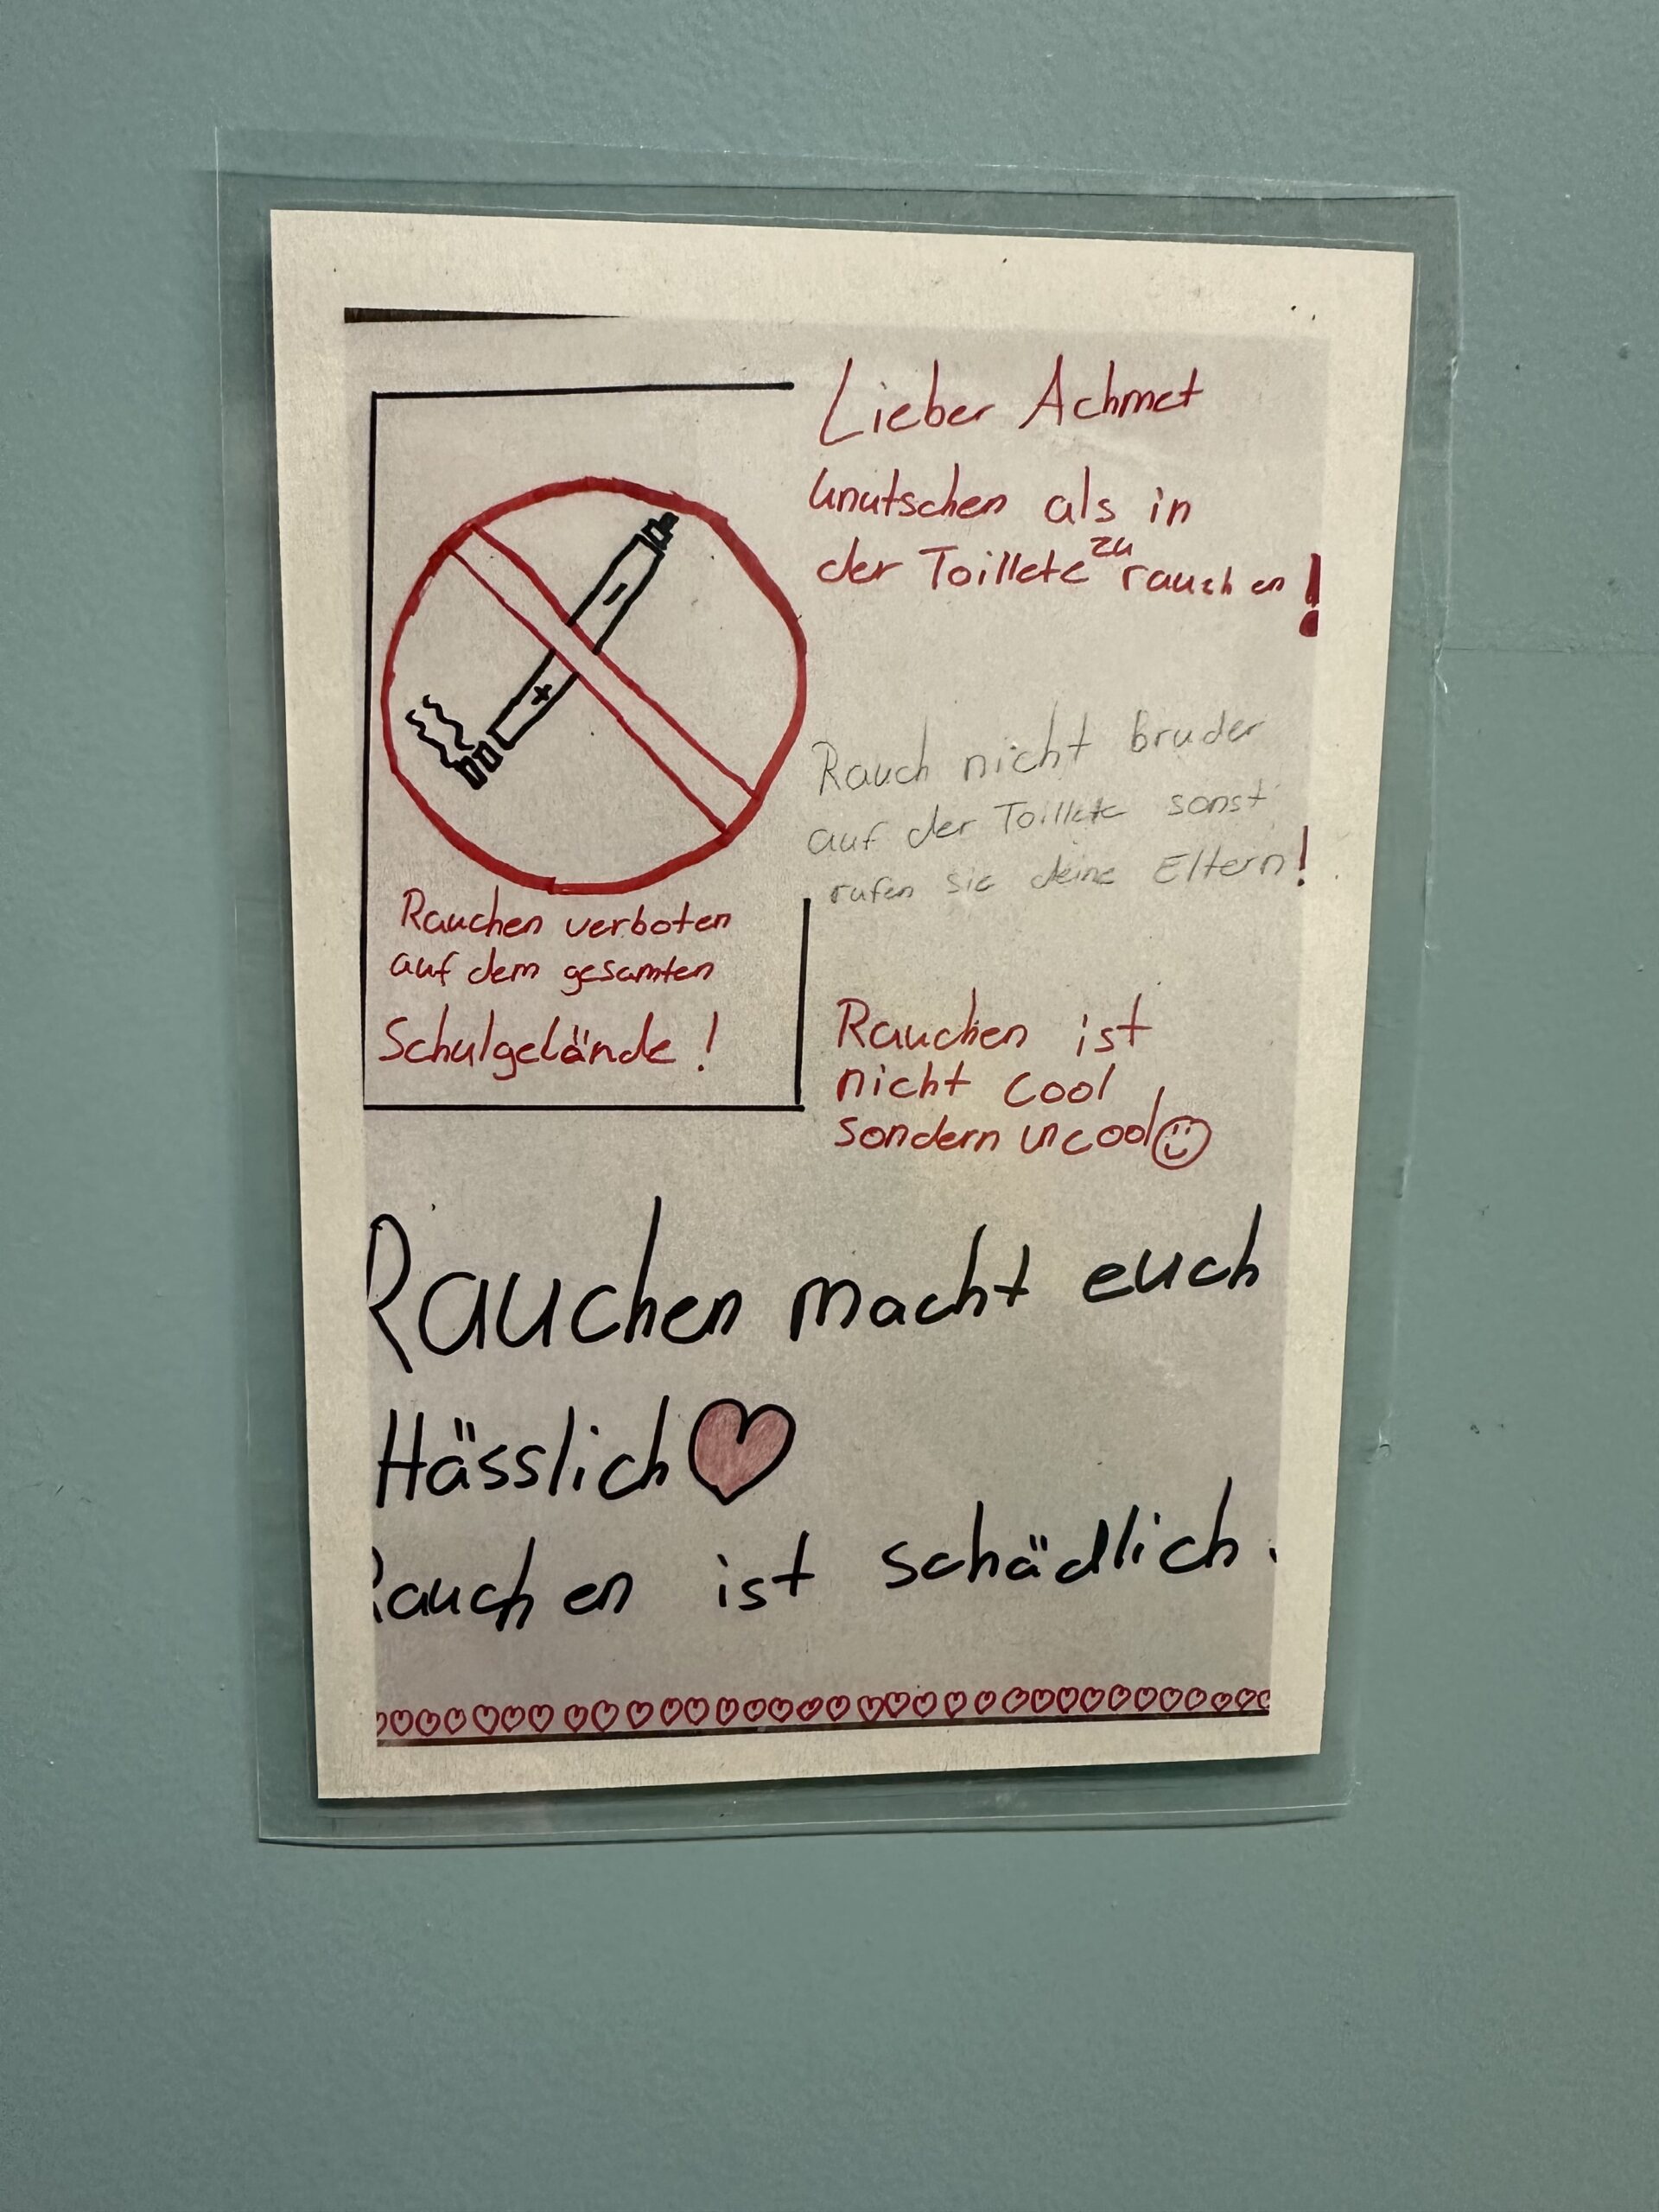 Lieber Achmet
knutschen als in
der Toillete zu rauchen!
Rauch nicht bruder
auf der Toillete sonst
rufen sie deine Eltern!
Rauchen verboten
auf dem gesamten
Schulgelände!
Rauchen ist
nicht cool
sondern uncool
Rauchen macht euch
Hässlich
Rauchen ist schädlich.